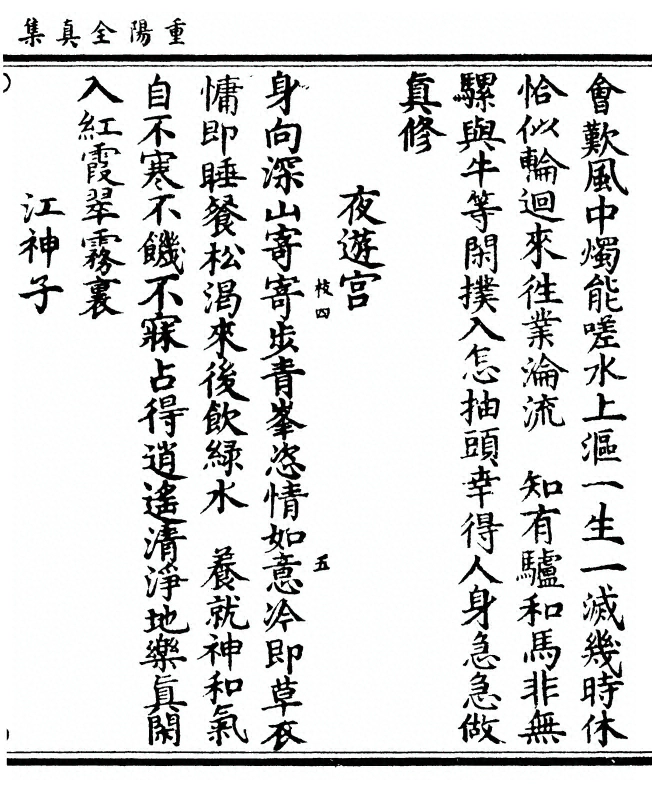 重陽全真集
會歎風中燭能嗟水上漚一生一滅幾時休
恰似輪迴來徃業淪流　知有驢和馬非無
騾與牛等閑撲入怎抽頭幸得人身急急做
真修
夜遊宫
身向深山寄寄步青峯恣情如意冷即草衣
慵即睡餐松渴來後飲緑水　養就神和氣
自不寒不饑不寐占得逍遙清淨地樂真閑
入紅霞翠霧裏
江神子
枝四
五